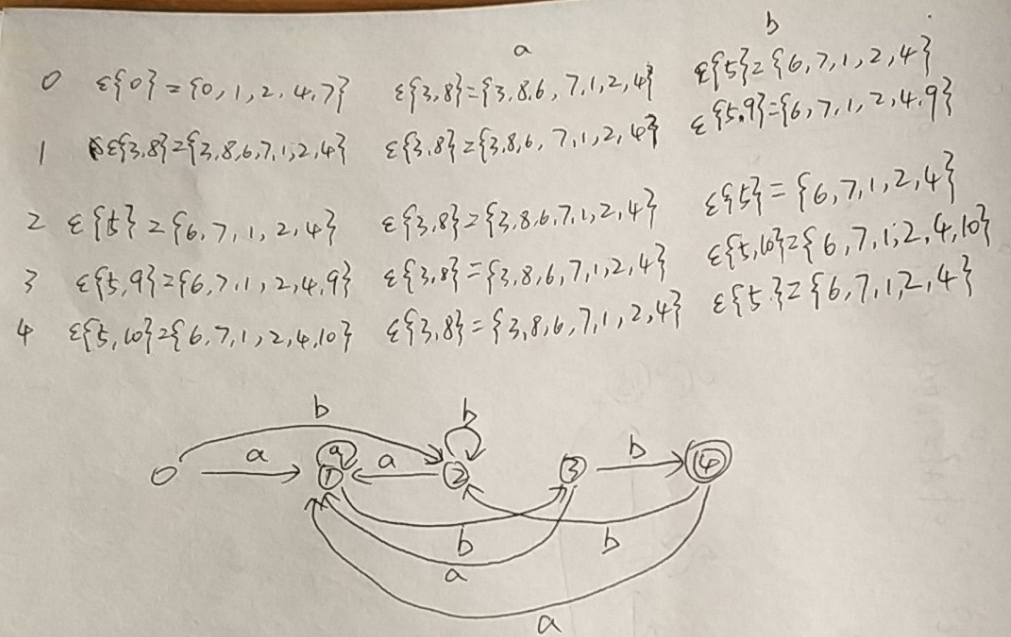 a b
0 ε{0}={0,1,2,4,7} ε{3,8}={3,8,6,7,1,2,4} ε{5}={6,7,1,2,4}
1 ε{3,8}={3,8,6,7,1,2,4} ε{3,8}={3,8,6,7,1,2,4} ε{5,9}={6,7,1,2,4,9}
2 ε{5}={6,7,1,2,4} ε{3,8}={3,8,6,7,1,2,4} ε{5}={6,7,1,2,4}
3 ε{5,9}={6,7,1,2,4,9} ε{3,8}={3,8,6,7,1,2,4} ε{5,10}={6,7,1,2,4,10}
4 ε{5,10}={6,7,1,2,4,10} ε{3,8}={3,8,6,7,1,2,4} ε{5}={6,7,1,2,4}
b b
a a a b
0 1 2 3 4
b b
a
a